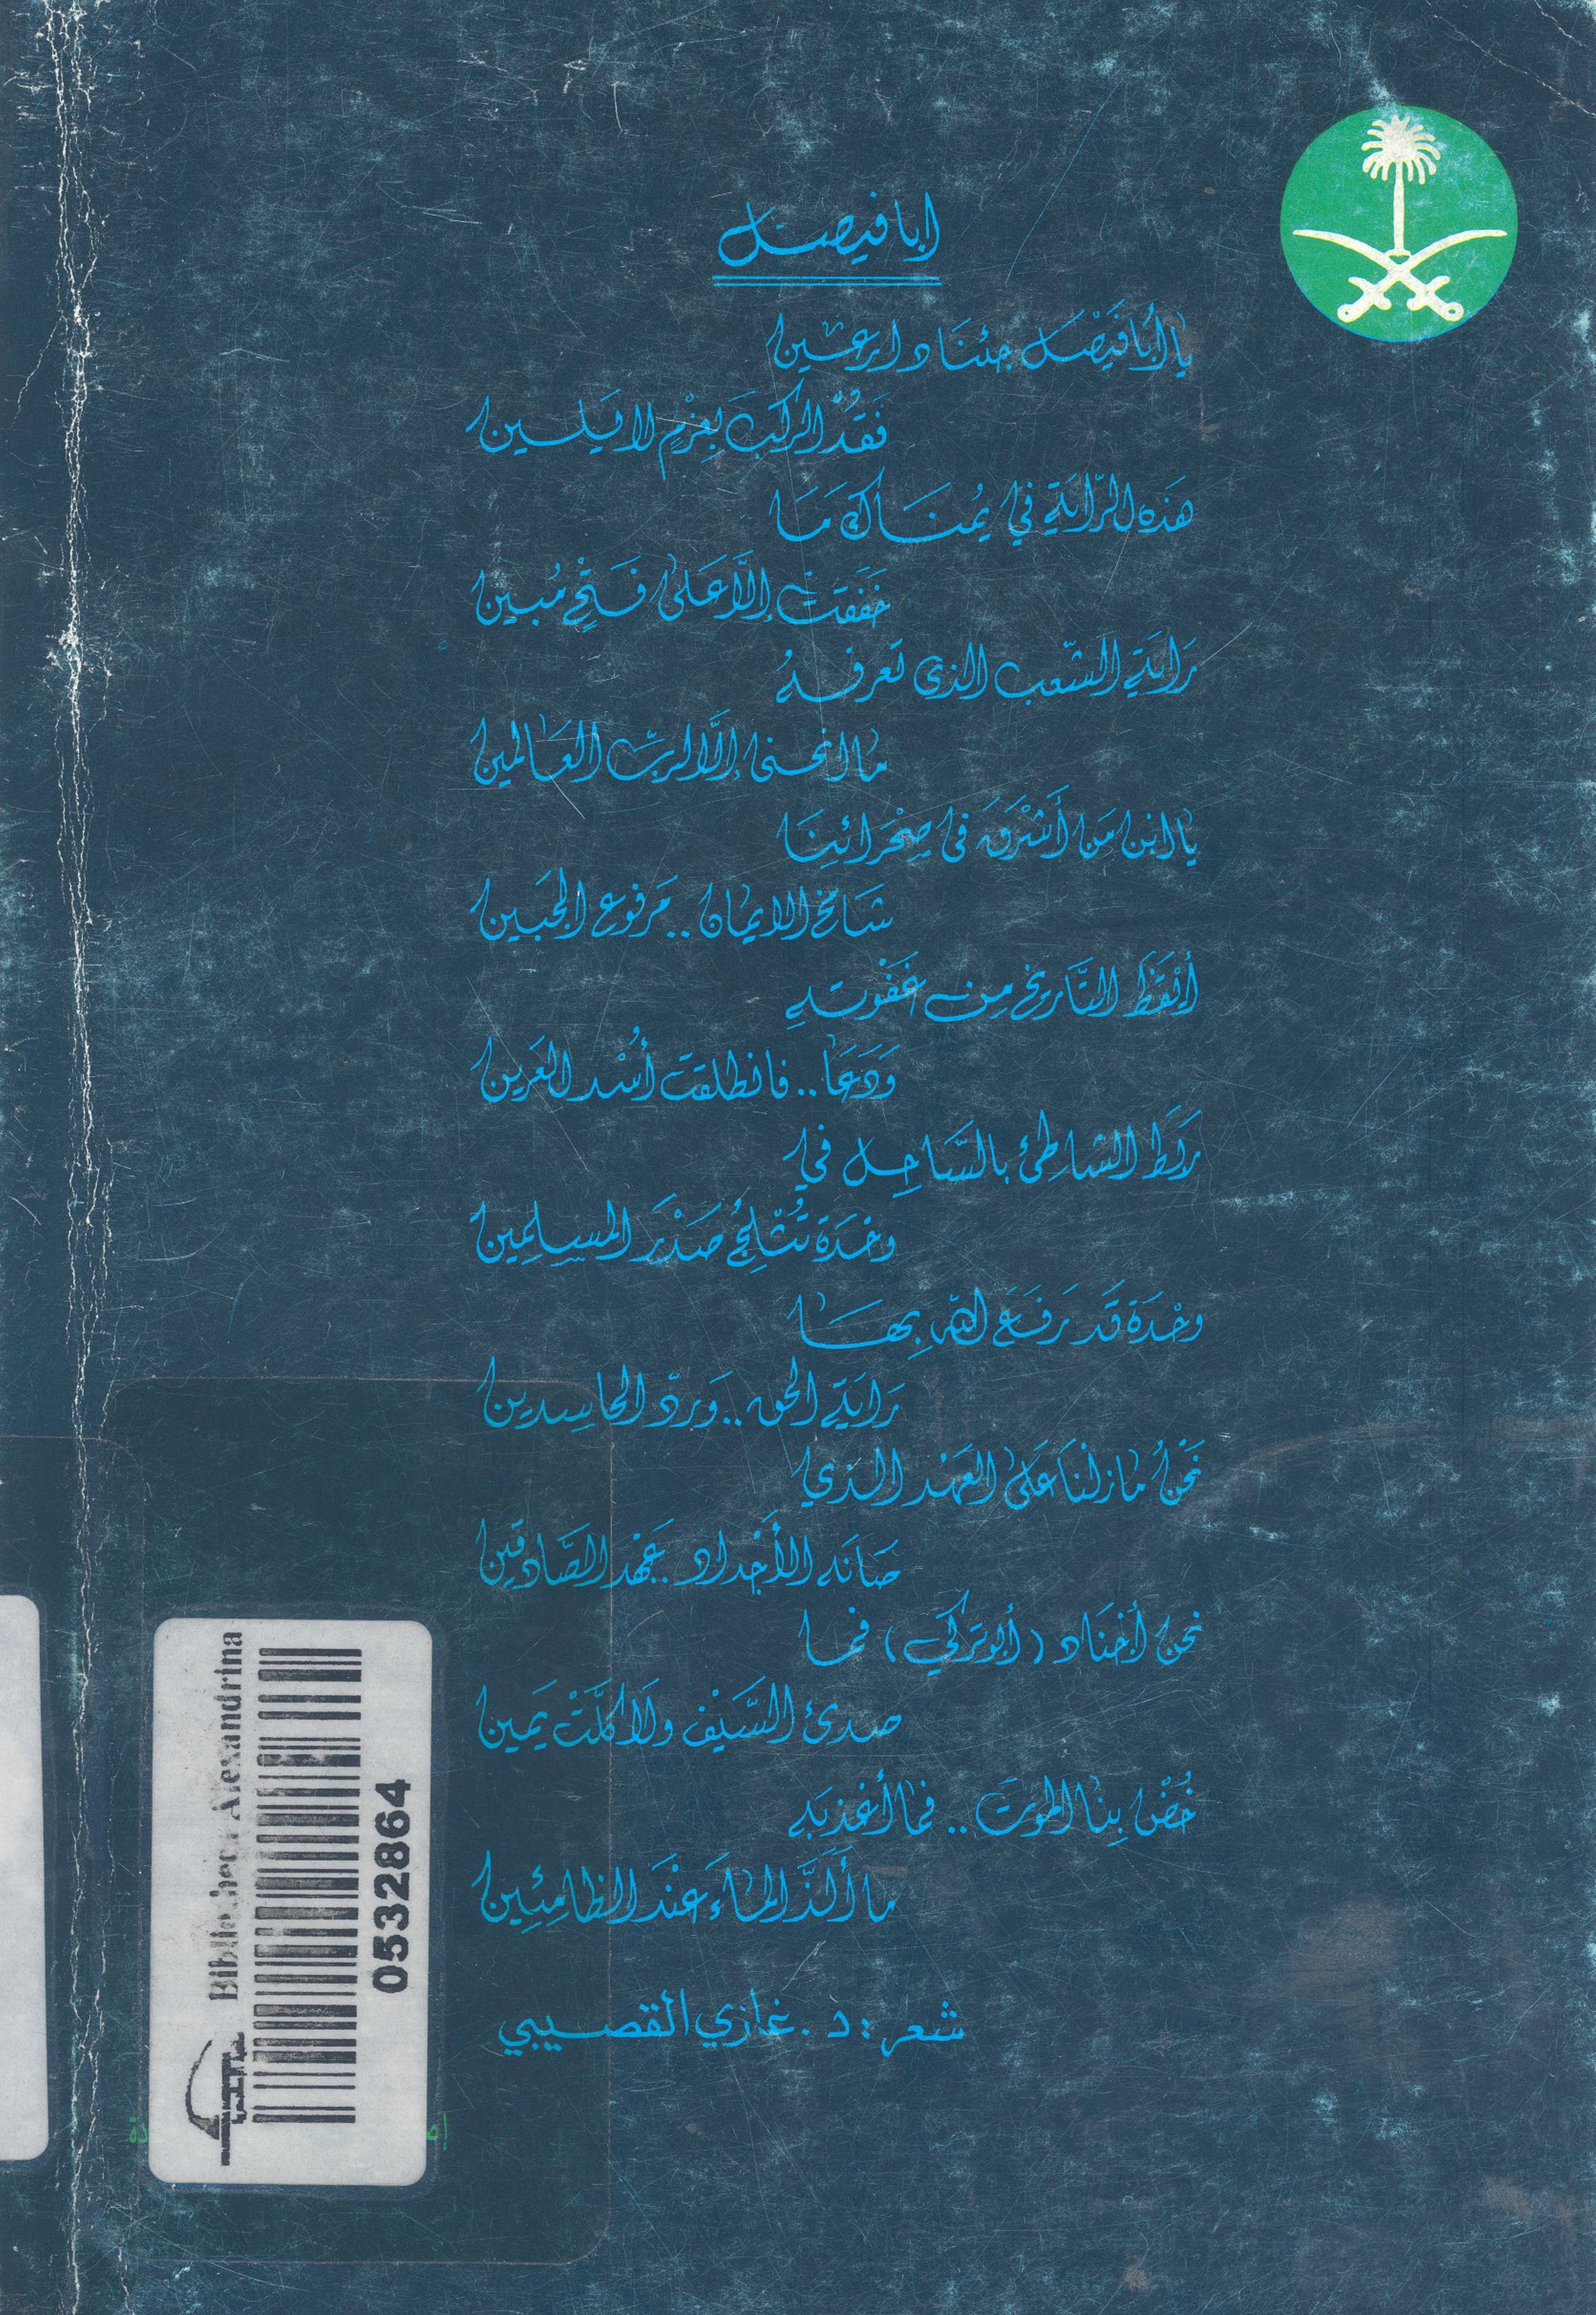 ابا فيصل
يا أبا فَيْصَل جئنَا دارعين
فَقُدِ الركبَ بعزْمٍ لا يلين
هَذه الرّاية في يُمنَاكَ مَا
خَفَقت إلَّا عَلى فَتْحٍ مُبين
رَاية الشّعب الذي تعرفهُ
ما انحنى إلَّا لربّ العَالمين
يا ابن مَن أَشْرَقَ في صِحْرَائِنَا
شَامخ الايمان .. مَرفوع الجَبين
أَيْقَظَ التَّاريخ من غَفْوته
وَدَعَا .. فانطلقت أُسْد العَرين
رَبَط الشاطئ بالسَّاحِل في
وحْدَة تُثْلِجُ صَدْرَ المسلِمين
وحْدَة قَد رَفَعَ الله بِهَا
رَايَة الحق .. وَردّ الحاسِدين
نَحْنُ مازلْنَا عَلى العَهْد الذي
صَانَه الأَجْداد .. عَهْد الصَّادقين
نحن أجنَاد ( أبو تركي ) فما
صدئ السَّيْف ولَا كلَّتْ يَمين
خُضْ بِنا الموت .. فما أعْذبَه
ما أَلَذَّ الماءَ عنْدَ الظامِئِين
شعر : د . غازي القصيبي
Bibliotheca Alexandrina
0532864